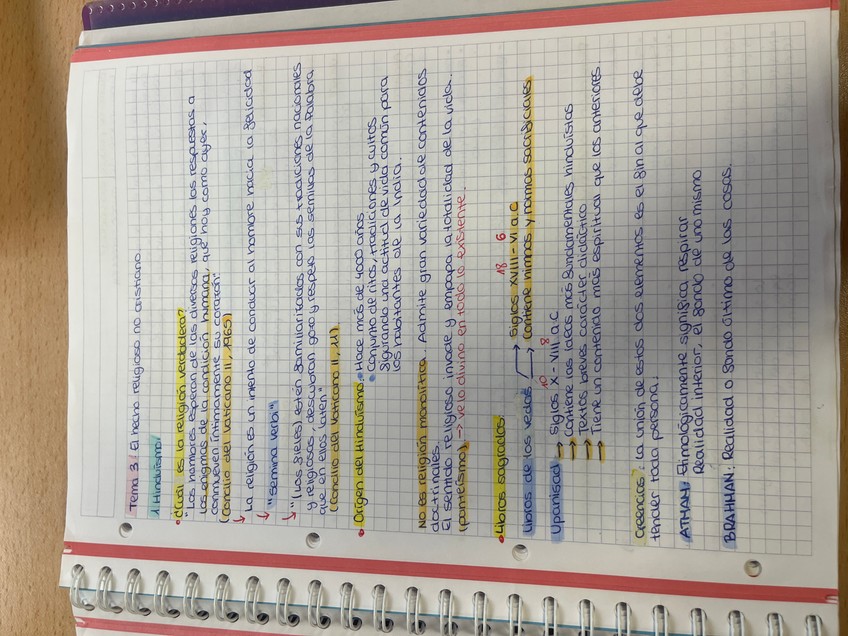 Tema 3: El hecho religioso no cristiano.
1. Hinduismo.
• ¿Cuál es la religión verdadera?
"Los hombres esperan de las diversas religiones las respuestas a
los enigmas de la condición humana, que hoy como ayer,
conmueven íntimamente su corazón"
(Concilio del Vaticano II, 1965)
↳ La religión es un intento de conducir al hombre hacia la felicidad
↳ "semina verbi"
↳ "(Los fieles) estén familiarizados con sus tradiciones nacionales
y religiosas, descubran gozo y respeto las semillas de la Palabra
que en ellas laten"
(Concilio del Vaticano II, 11)
• Origen del Hinduismo • Hace más de 4000 años
• Conjunto de ritos, tradiciones y cultos
figurando una actitud de vida común para
los habitantes de la India.
No es religión monolítica. Admite gran variedad de contenidos
doctrinales.
El sentido religioso invade y empapa la totalidad de la vida.
(panteísmo) → ve lo divino en todo lo existente.
• Libros sagrados
18 6
Libros de los vedas → Siglos XVIII - VI a.C
→ Contiene himnos y normas sacrificiales
10 8
Upanisad → Siglos X - VIII a.C
→ Contiene las ideas más fundamentales hinduistas
→ Textos breves carácter didáctico
→ Tiene un contenido más espiritual que los anteriores
Creencias: La unión de estos dos elementos es el final que debe
tender toda persona.
ATMAN: Etimológicamente significa, respirar
Realidad interior, el fondo de uno mismo
BRAHMAN: Realidad o fondo último de las cosas.